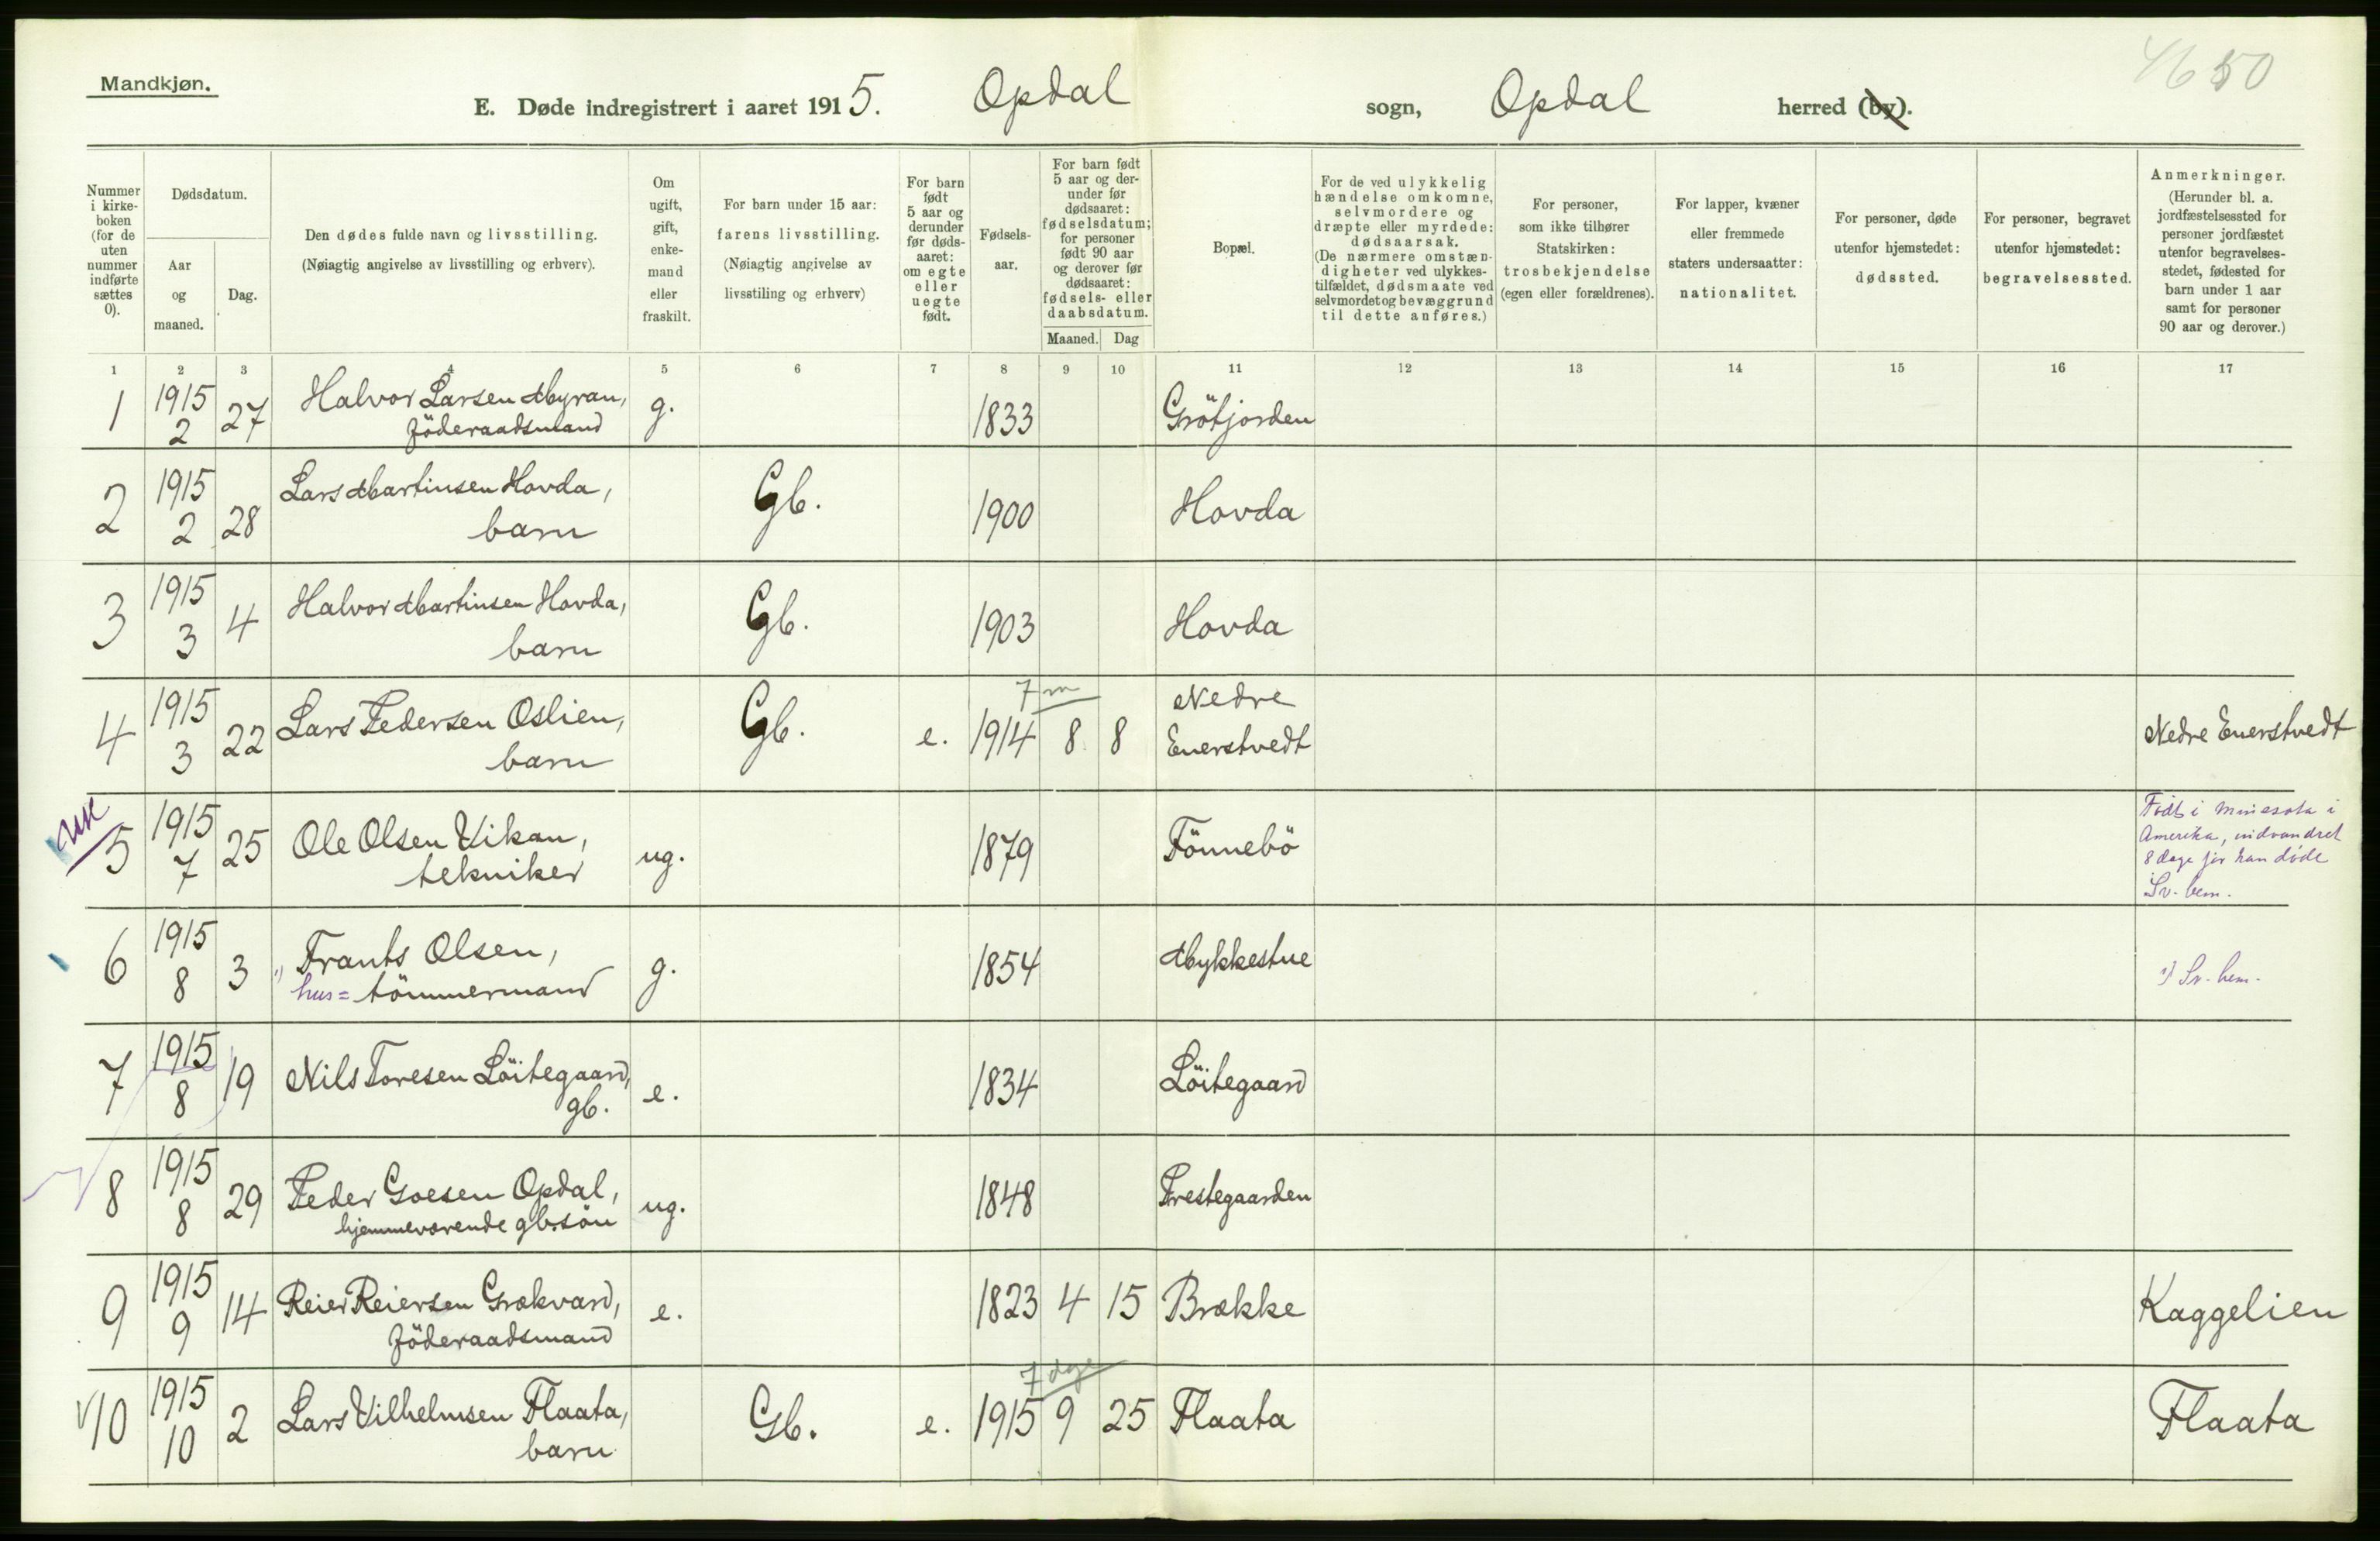 Mandkjøn.
4650
E. Døde indregistrert i aaret 1915. Opdal sogn, Opdal herred (by).
Nummer i kirke-boken (for de uten nummer indførte sættes 0).
Dødsdatum.
Aar og maaned.
Dag.
Den dødes fulde navn og livsstilling.
(Nøiagtig angivelse av livsstilling og erhverv).
Om ugift, gift, enke-mand eller fraskilt.
For barn under 15 aar:
farens livsstilling.
(Nøiagtig angivelse av
livsstiling og erhverv)
For barn født 5 aar og derunder før døds-aaret: om egte eller uegte født.
Fødsels-aar.
For barn født 5 aar og der-under før dødsaaret: fødselsdatum; for personer født 90 aar og derover før dødsaaret: fødsels- eller daabsdatum.
Maaned. Dag
Bopæl.
For de ved ulykkelig hændelse omkomne, selvmordere og dræpte eller myrdede: dødsaarsak. (De nærmere omstæn-digheter ved ulykkes-tilfældet, dødsmaate ved selvmordet og bevæggrund til dette anføres.)
For personer, som ikke tilhører Statskirken: trosbekjendelse (egen eller forældrenes).
For lapper, kvæner eller fremmede staters undersaatter: nationalitet.
For personer, døde utenfor hjemstedet: dødssted.
For personer, begravet utenfor hjemstedet: begravelsessted.
Anmerkninger.
(Herunder bl. a. jordfæstelsessted for personer jordfæstet utenfor begravelses-stedet, fødested for barn under 1 aar samt for personer 90 aar og derover.)
1 2 3 4 5 6 7 8 9 10 11 12 13 14 15 16 17
1 1915 2 27 Halvor Larsen Myran, g. 1833 Grötjorden
föderaadsmand
2 1915 2 28 Lars Martinsen Hovda, Gb. 1900 Hovda
barn
3 1915 3 4 Halvor Martinsen Hovda, Gb. 1903 Hovda
barn
7 m
4 1915 3 22 Lars Pedersen Oslien, Gb. e. 1914 8 8 Nedre Enerstvedt Nedre Enerstvedt
barn
5 1915 7 25 Ole Olsen Vikan, ug. 1879 Tönnebö
tekniker
Født i Minesota i
Amerika, indvandret
8 dage før han døde
Sv. bem.
6 1915 8 3 Frants Olsen, g. 1854 Mykkestue 1) Sv. bem.
1) hus= tömmermand
7 1915 8 19 Nils Toresen Löitegaard, e. 1834 Löitegaard
gb.
8 1915 8 29 Peder Goesen Opdal, ug. 1848 Prestegaarden
hjemmeværende gb.sön
9 1915 9 14 Reier Reiersen Grøkvard, e. 1823 4 15 Brække Kaggelien
föderaadsmand
7 dge
10 1915 10 2 Lars Vilhelmsen Flaata, Gb. e. 1915 9 25 Flaata Flaata
barn